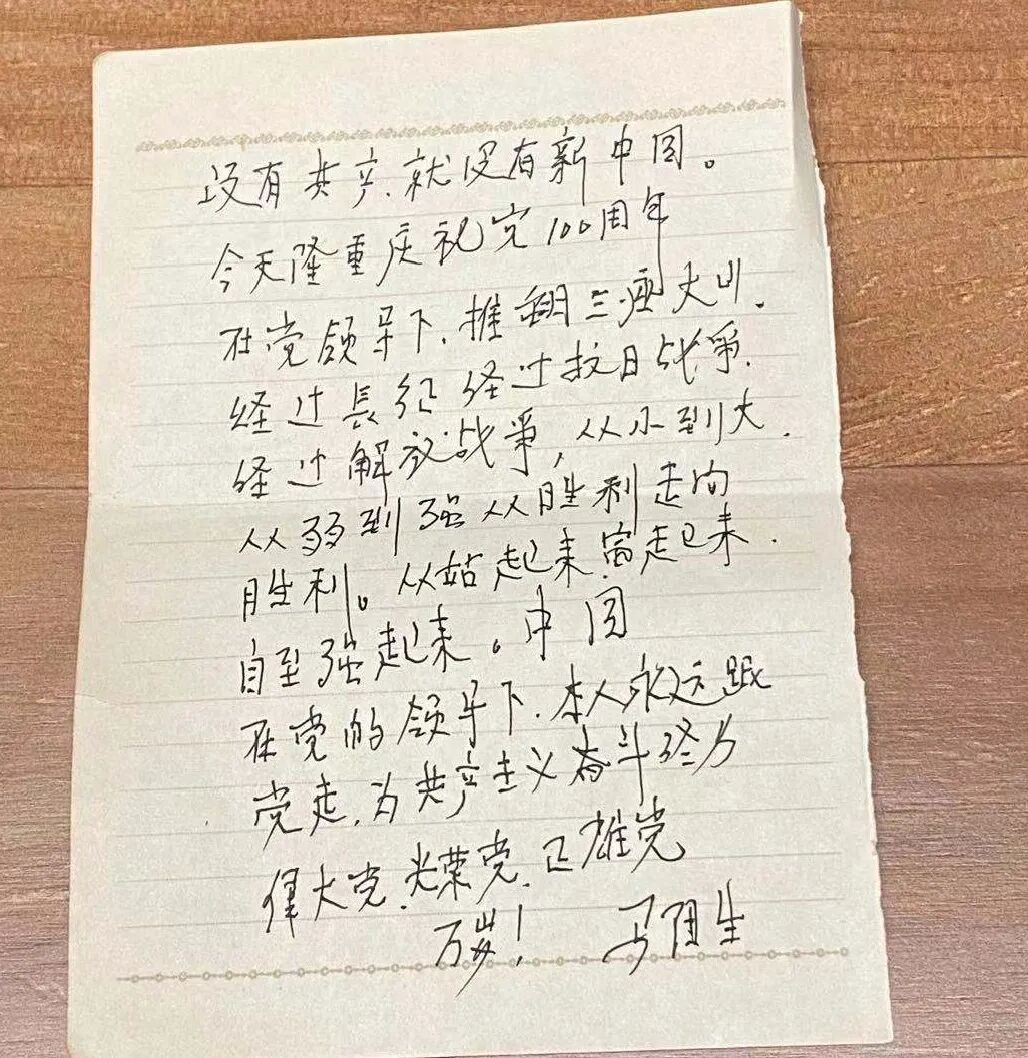 没有共产、就没有新中国。
今天隆重庆祝党100周年
在党领导下、推翻三座大山、
经过長征经过抗日战爭、
经过解放战爭，从小到大、
从弱到强从胜利走向
胜利。从站起来富起来、
自至强起来。中国
在党的领导下、本人永远跟
党走、为共产主义奋斗终
偉大党、光荣党、正雄党
万岁！ 马阻生